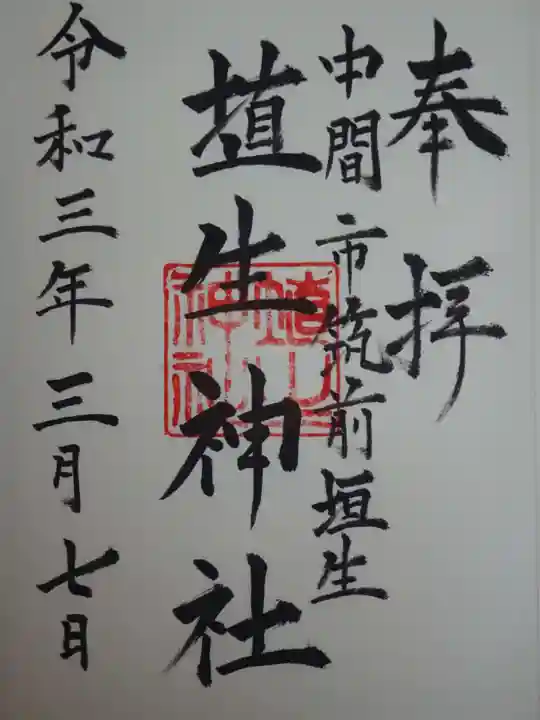 奉拝
中間市筑前垣生
埴生神社
令和三年三月七日
埴生神社